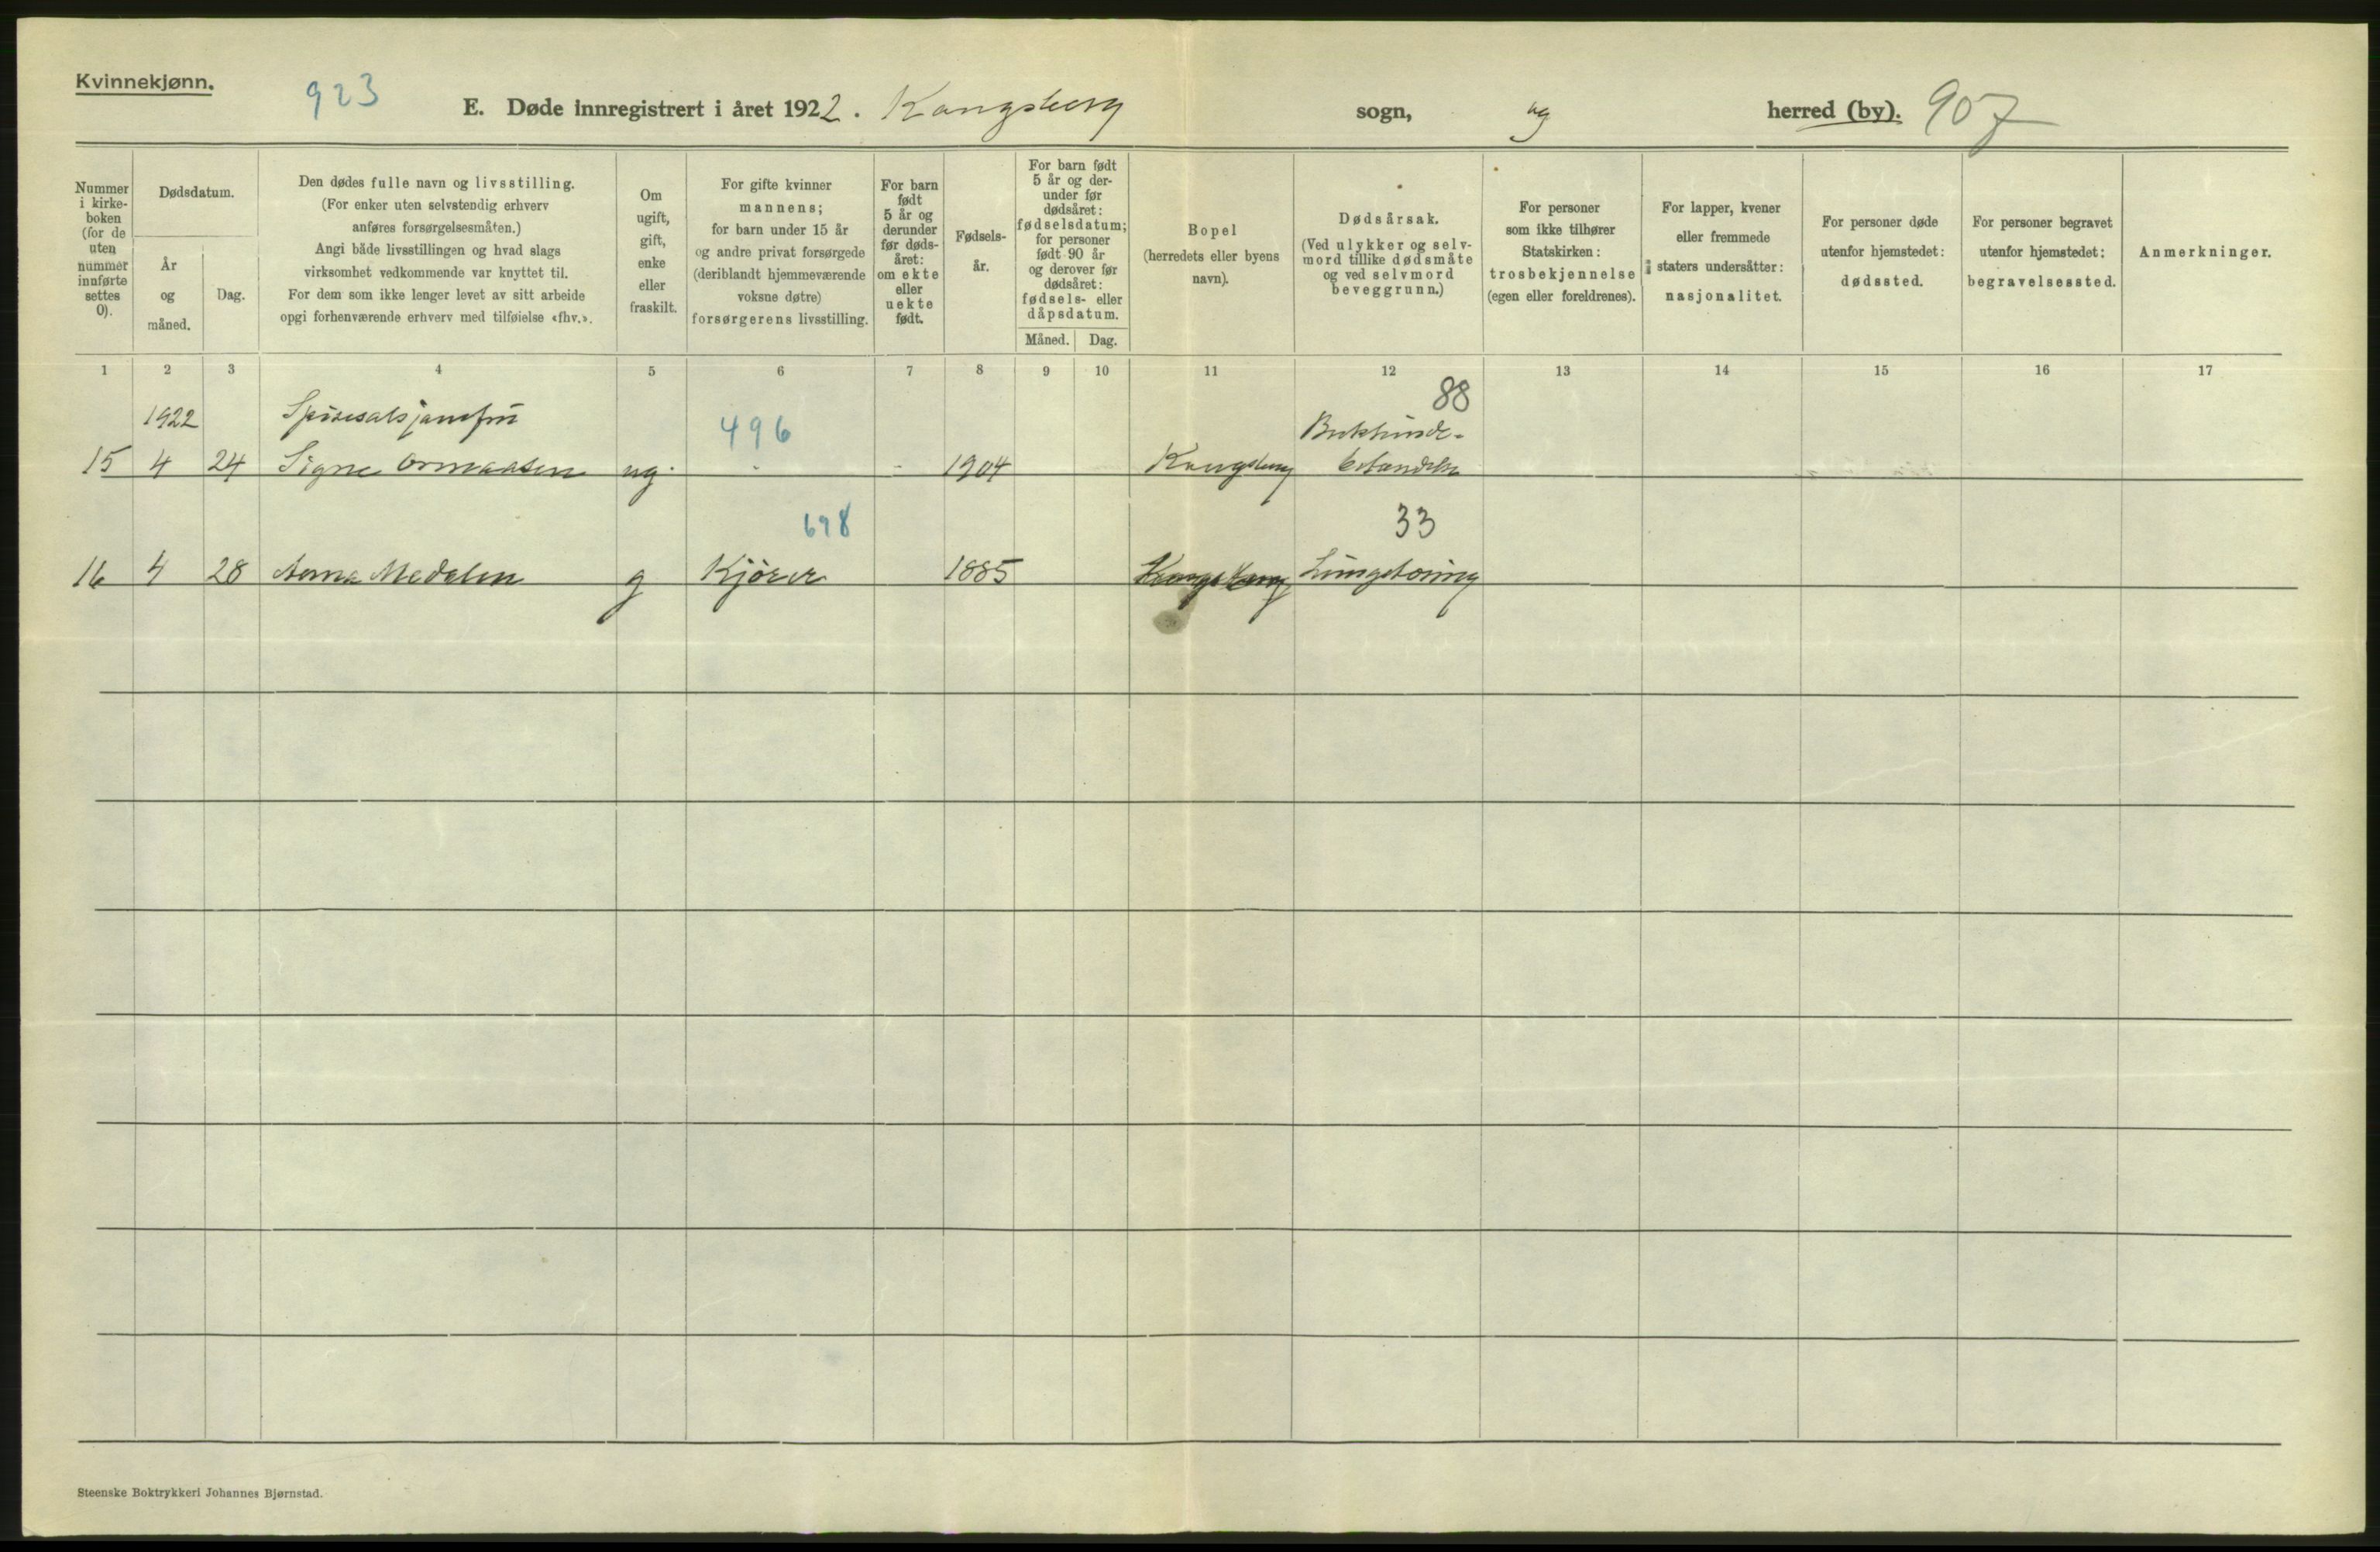 Kvinnekjønn.
923
E. Døde innregistrert i året 1922. Kongsberg sogn, og herred (by). 907
Nummer
i kirke-
boken
(for de
uten
nummer
innførte
settes
0).
Dødsdatum.
År
og
måned.
Dag.
Den dødes fulle navn og livsstilling.
(For enker uten selvstendig erhverv
anføres forsørgelsesmåten.)
Angi både livsstillingen og hvad slags
virksomhet vedkommende var knyttet til.
For dem som ikke lenger levet av sitt arbeide
opgi forhenværende erhverv med tilføielse «fhv.».
Om
ugift,
gift,
enke
eller
fraskilt.
For gifte kvinner
mannens;
for barn under 15 år
og andre privat forsørgede
(deriblandt hjemmeværende
voksne døtre)
forsørgerens livsstilling.
For barn
født
5 år og
derunder
før døds-
året:
om ekte
eller
uekte
født.
Fødsels-
år.
For barn født
5 år og der-
under før
dødsåret:
fødselsdatum;
for personer
født 90 år
og derover før
dødsåret:
fødsels- eller
dåpsdatum.
Måned. Dag.
Bopel
(herredets eller byens
navn).
Dødsårsak.
(Ved ulykker og selv-
mord tillike dødsmåte
og ved selvmord
beveggrunn.)
For personer
som ikke tilhører
Statskirken:
trosbekjennelse
(egen eller foreldrenes).
For lapper, kvener
eller fremmede
staters undersåtter:
nasjonalitet.
For personer døde
utenfor hjemstedet:
dødssted.
For personer begravet
utenfor hjemstedet:
begravelsessted.
Anmerkninger.
1 2 3 4 5 6 7 8 9 10 11 12 13 14 15 16 17
88
1922 Spisesalsjomfru 496 Bukhinde-
15 4 24 Signe Ormaasen ug. - - 1904 Kongsberg betændelse
698 33
16 4 28 Anna Medalen g Kjører 1885 Kongsberg Lungetæring
Steenske Boktrykkeri Johannes Bjørnstad.